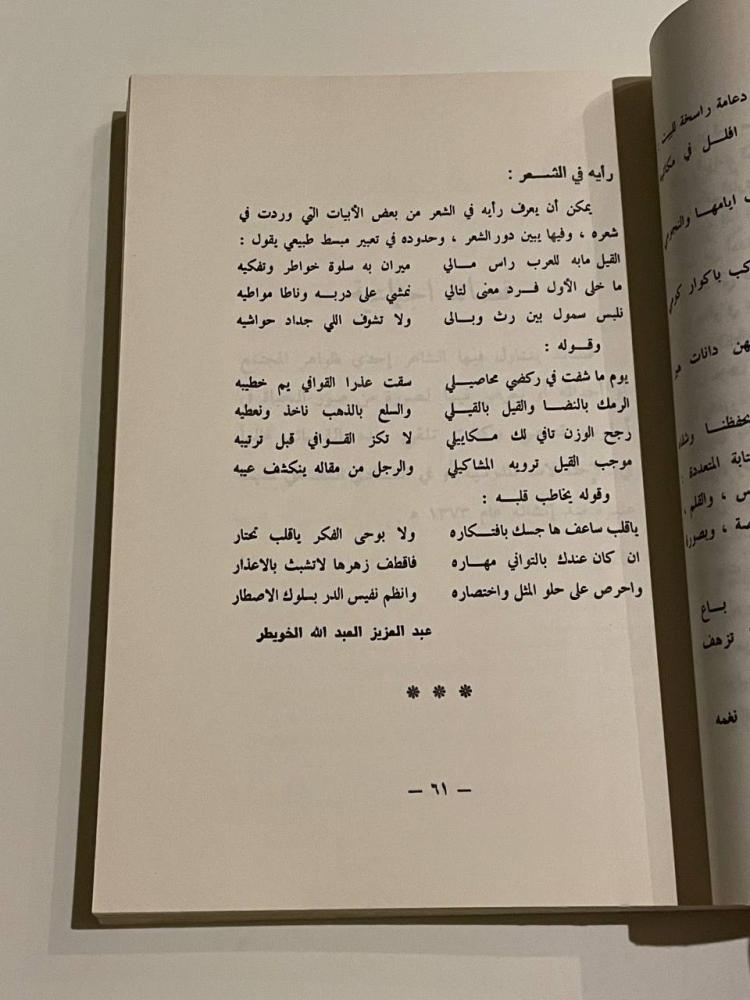 رأيه في الشعر :
يمكن أن يعرف رأيه في الشعر من بعض الأبيات التي وردت في
شعره ، وفيها يبين دور الشعر ، وحدوده في تعبير مبسط طبيعي يقول :
القيل مابه للعرب راس مالي ميران به سلوة خواطر وتفكيه
ما خلى الأول فرد معنى لتالي نمشي على دربه وناطا مواطيه
نلبس سمول بين رث وبالى ولا تشوف اللي جداد حواشيه
وقوله :
يوم ما شفت في ركضي محاصيلي سقت عذرا القوافي يم خطيبه
الرمك بالنضا والقيل بالقيلي والسلع بالذهب ناخذ ونعطيه
رجح الوزن تافي لك مكاييلي لا تكز القوافي قبل ترتيبه
موجب القيل ترويه المشاكيلي والرجل من مقاله ينكشف عيبه
وقوله يخاطب قلبه :
ياقلب ساعف هاجسك بافتكاره ولا بوحى الفكر ياقلب تحتار
ان كان عندك بالتواني مهاره فاقطف زهرها لاتشبث بالاعذار
واحرص على حلو المثل واختصاره وانظم نفيس الدر بسلوك الاصطار
عبد العزيز العبد الله الخويطر
* * *
— ٦١ —
دعامة راسخة
افلل في
ايامها
كب باكوار
هن دانات
يحفظنا
كتابة المتعددة :
س ، والقلم ،
صة ،
بباع
تزهف
نغمه